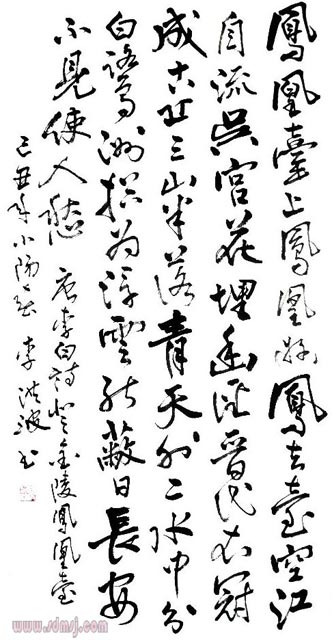 鳳凰臺上鳳凰游鳳去臺空江
自流吳宮花埋幽徑晉代衣冠
成古丘三山半落青天外二水中分
白鷺洲總為浮雲能蔽日長安
不見使人愁 唐李白詩登金陵鳳凰臺
己丑年小陽 李洪波书
www.sdmsj.com